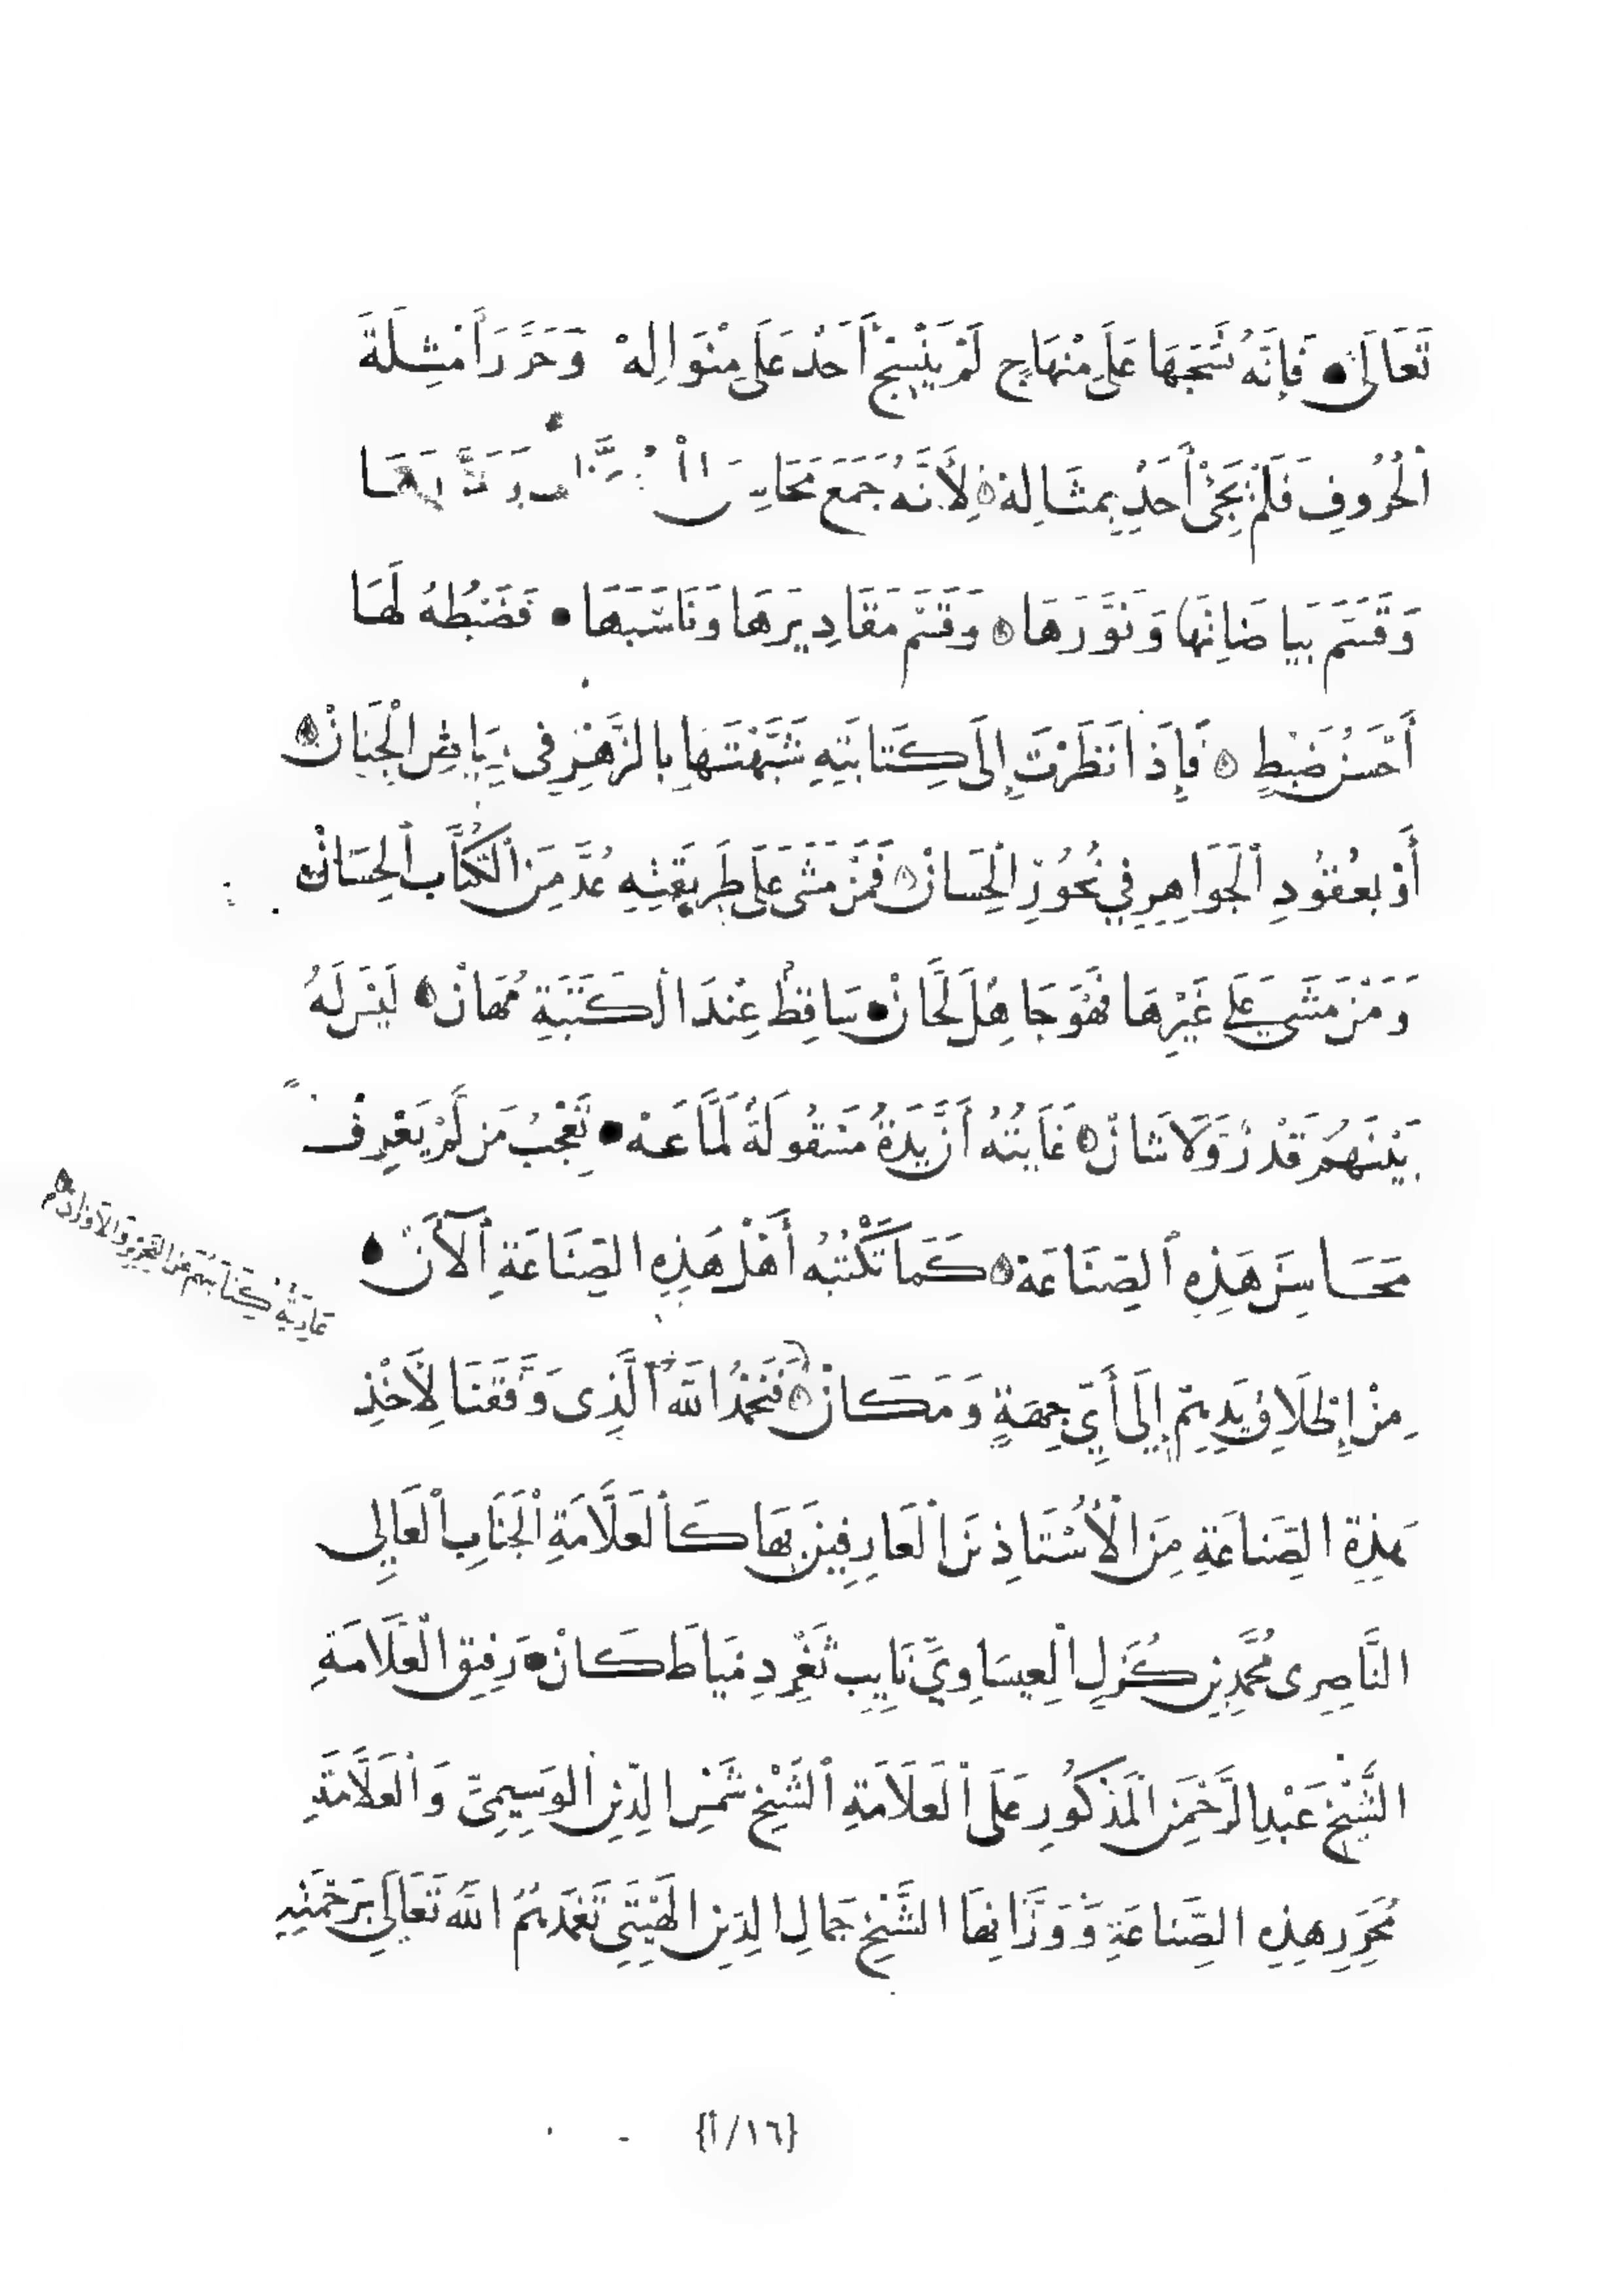 تَعَالَى • فَإِنَّهُ نَسَجَهَا عَلَى مِنْهَاجٍ لَمْ يَنْسِجْ أَحَدٌ عَلَى مِنْوَالِهْ وَحَرَّرَ أَمْثِلَةَ
ٱلْحُرُوفِ فَلَمْ يَجِئْ أَحَدٌ بِمِثَالِهْ ۞ لِأَنَّهُ جَمَعَ مَحَاسِنَ
وَقَسَّمَ بَيَاضَاتِهَا وَنَوَّرَهَا ۞ وَقَسَّم مَقَادِيرَهَا وَنَاسَبَهَا • فَضَبْطُهُ لَهَا
أَحْسَنُ ضَبْطٍ ۞ فَإِذَا نَظَرْتَ إِلَى كِتَابَتِهِ شَبَّهْتَهَا بِالزَّهْرِ فِى رِيَاضِ الْجِنَانْ ۞
أَوْ بِعُقُودِ ٱلْجَوَاهِرِ فِي نُحُورِ ٱلْحِسَانْ ۞ فَمَنْ مَشَى عَلَى طَرِيقَتِهِ عُدَّ مِنَ ٱلْكُتَّابِ ٱلْحِسَانْ
وَمَنْ مَشَى عَلَى غَيْرِهَا فَهُوَ جَاهِلٌ لَحَّانْ • سَاقِطٌ عِنْدَ الْكَتَبَةِ مُهَانْ ۞ لَيْسَ لَهُ
بَيْنَهُمْ قَدْرٌ وَلَا شَانْ ۞ غَايَتُهُ أَنَّ يَدَهُ مَصْقُولَةٌ لَمَّاعَهْ • تُعْجِبُ مَن لَمْ يَعْرِفْ
مَحَاسِنَ هَذِهِ ٱلصِّنَاعَهْ ۞ كَمَا تَكْتُبُهُ أَهْلُ هَذِهِ الصِّنَاعَةِ ٱلْآنَ •
مِنْ إِطْلَاقِ يَدِهِمْ إِلَى أَيِّ جِهَةٍ وَمَكَانْ ۞ فَنَحْمَدُ اللهَ ٱلَّذِى وَفَّقَنَا لِأَخْذِ
هَذِهِ الصِّنَاعَةِ مِنَ الْأُسْتَاذِنَ الْعَارِفِينَ بِهَا كَالْعَلَّامَةِ ٱلْجَنَابِ ٱلْعَالِي
النَّاصِرِى مُحَمَّدِ بْنِ كُزَلِ ٱلْعِيسَاوِيِّ نَايِبِ ثَغْرِ دِمْيَاطَ كَانْ • رَفِيقِ الْعَلَّامَةِ
الشَّيْخِ عَبْدِ الرَّحْمَنِ الْمَذْكُورِ عَلَى ٱلْعَلَّامَةِ ٱلشَّيْخِ شَمْسِ الدِّينِ الْوَسِيمِيِّ وَالْعَلَّامَةِ
مُحَرِّرِ هَذِهِ الصِّنَاعَةِ وَوَزَّانِهَا الشَّيْخِ جَمَالِ الدِّينِ الْهَيْتِيِّ تَغَمَّدَهُمُ اللهُ تَعَالَى بِرَحْمَتِهِ
{١٦/أ}